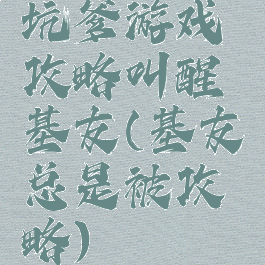 坑爹游戏
攻略叫醒
基友(基友
总是被攻
略)